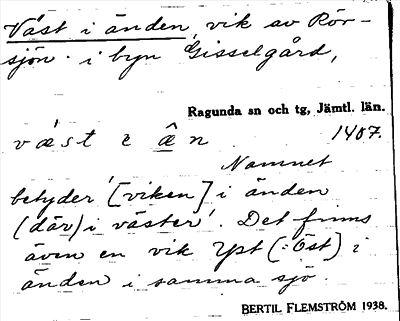 Väst i änden, vik av Rör-
sjön i byn Gisselgård,
Ragunda sn och tg, Jämtl. län.
væ̀st ɛ æ̂n 1407.
Namnet
betyder '[viken] i änden
(där) i väster'. Det finns
även en vik Yst (: Öst) i
änden i samma sjö.
BERTIL FLEMSTRÖM 1938.